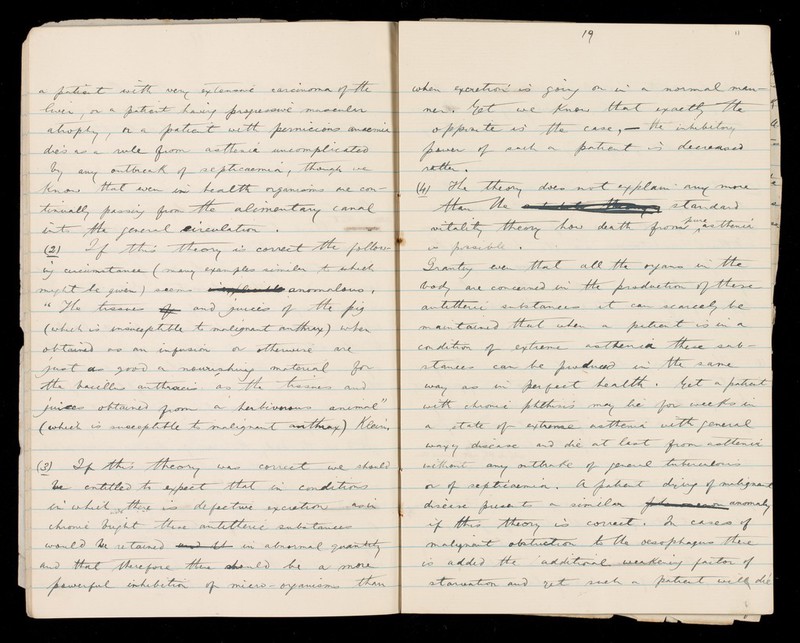 a patient with very extensive carcinoma of the
liver, or a patient having progressive muscular
atrophy, or a patient with pernicious anaemia
dies as a rule from asthenia uncomplicated
by any outbreak of septicaemia, though we
know that even in health organisms are con-
tinually passing from the alimentary canal
into the general circulation.
(2) If this theory is correct the follow-
ing circumstance (many examples similar to which
might be given) seems anomalous.
"The tissues of and juices of the pig
(which is insusceptible to malignant anthrax) when
obtained as an infusion or otherwise are
just as good a nourishing material for
the bacillus anthracis as the tissues and
juices obtained from a herbivorous animal"
(which is susceptible to malignant anthrax) Klein.
(3) If this theory was correct we should
be entitled to expect that in conditions
in which there is defective excretion as in
chronic bright these antitheric substances
would be retained and in abnormal quantity
and that therefore there should be a more
powerful inhibition of micro-organisms than
19
11
when excretion is going on in a normal man-
ner. Yet we know that exactly the
opposite is the case, — the inhibitory
power of such a patient is decreased
rather.
(4) The theory does not explain any more
than the standard
vitality theory how death from pure asthenia
is possible.
Granting even that all the organs in the
body are concerned in the production of these
antitheric substances it can scarcely be
maintained that when a patient is in a
condition of extreme asthenia these sub-
stances can be produced in the same
way as in perfect health. Yet a patient
with chronic phthisis may lie for weeks in
a state of extreme asthenia with general
waxy disease and die at last from asthenia
without any outbreak of general tuberculosis
or of septicaemia. A patient dying of malignant
disease presents a similar phenomenon anomaly
if this theory is correct. In cases of
malignant obstruction to the oesophagus there
is added the additional weakening factor of
starvation and yet such a patient will die